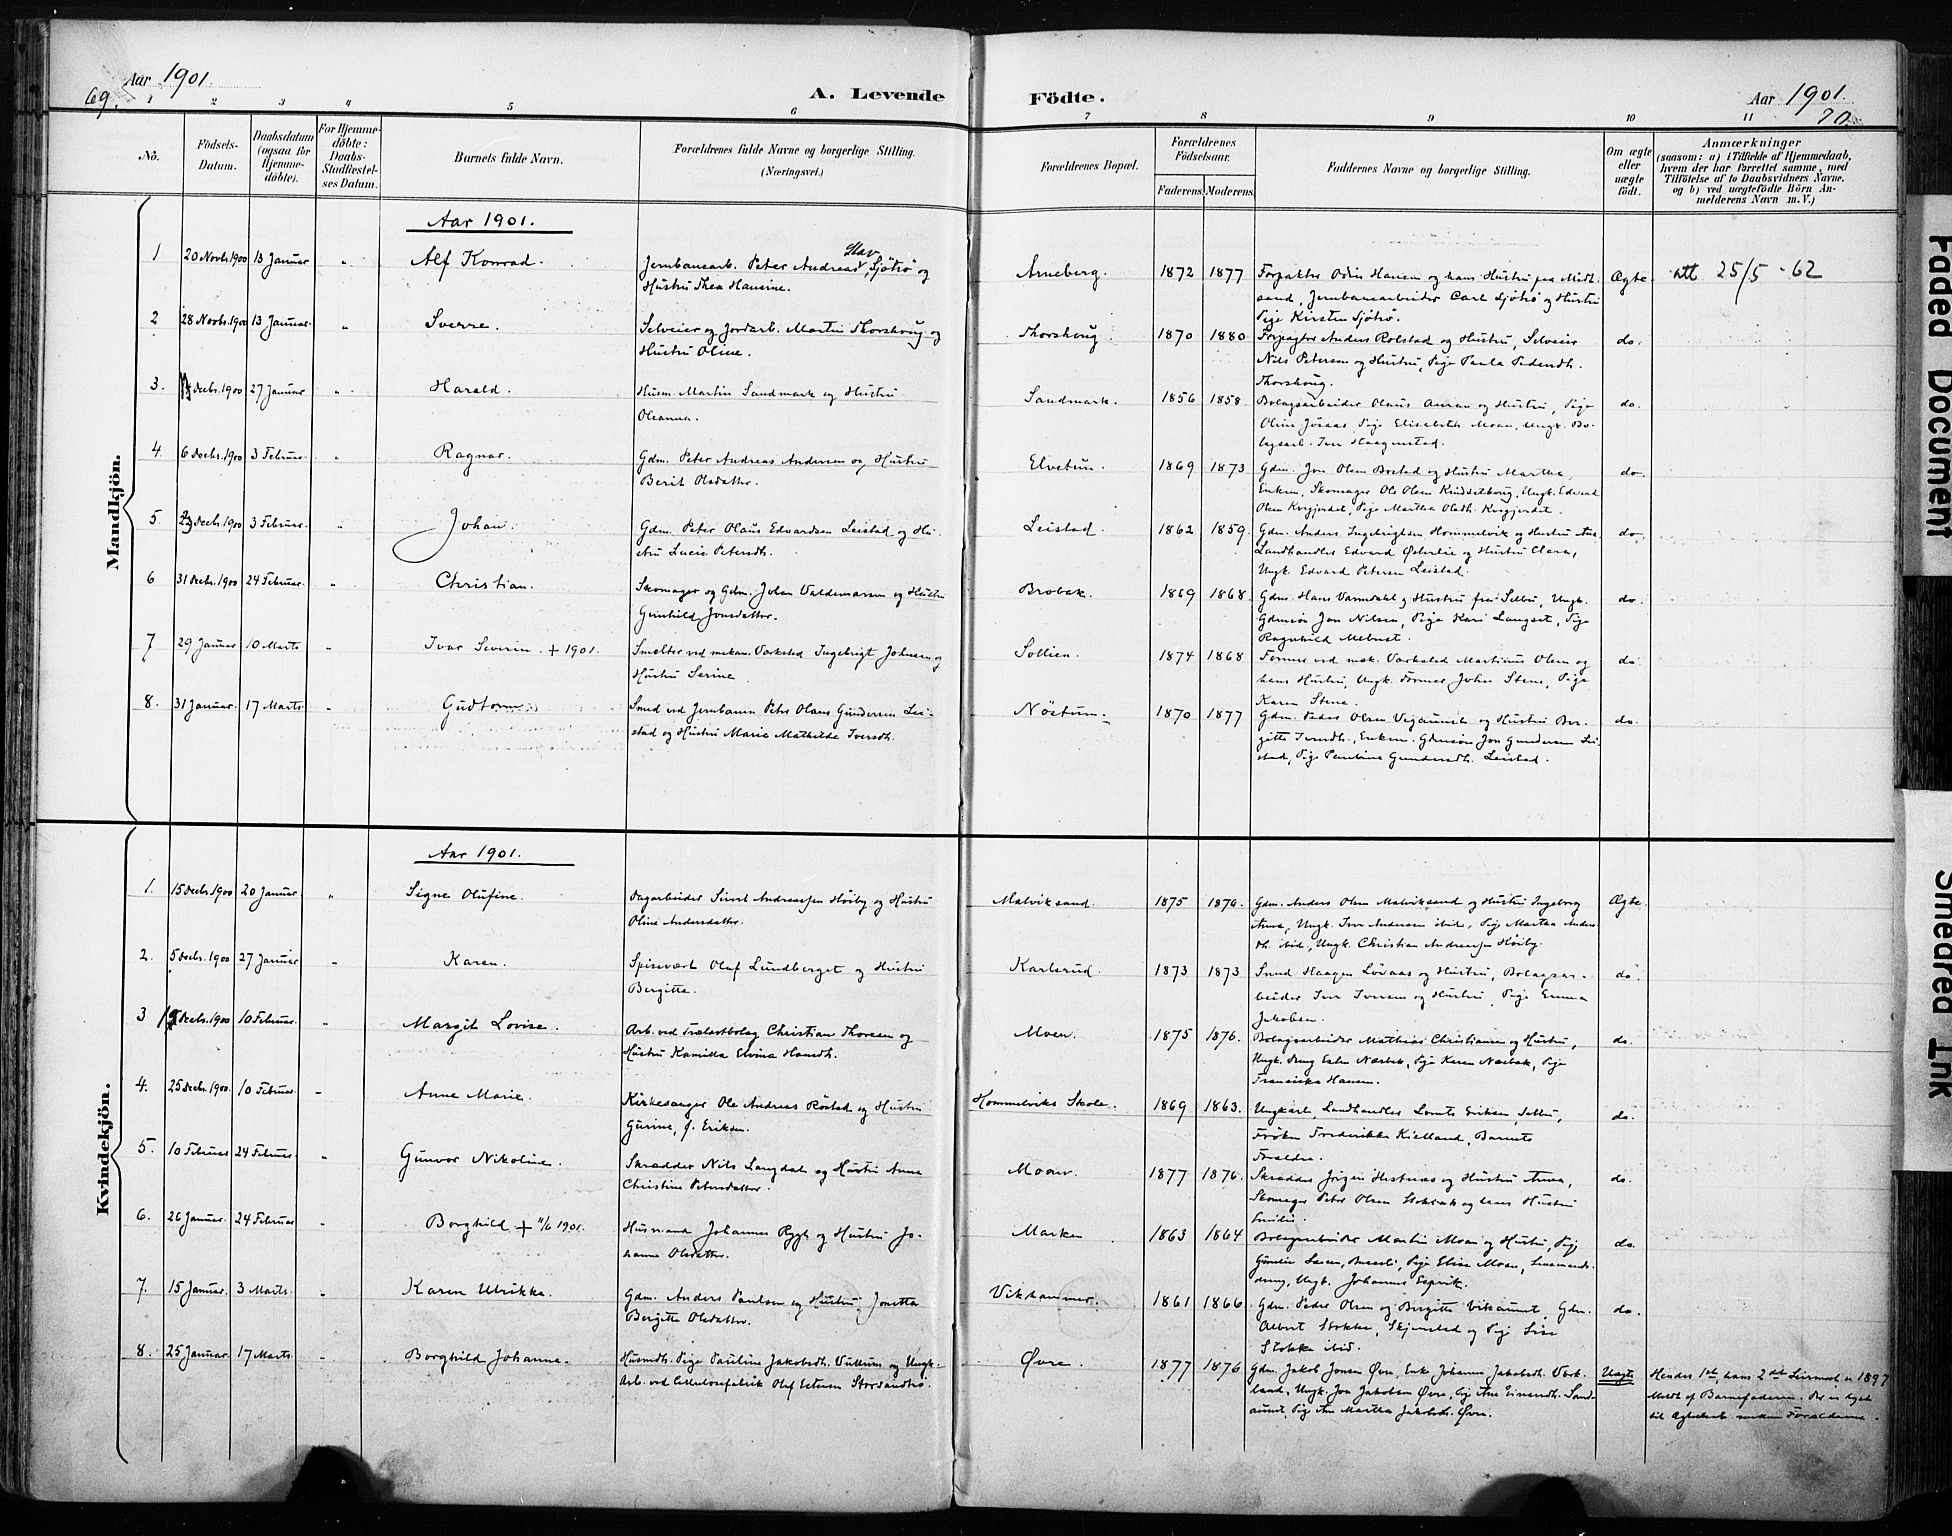 Aar 1901.
69.
A. Levende Födte.
Aar 1901.
70
1 2 3 4 5 6 7 8 9 10 11
No.
Födsels-Datum.
Daabsdatum (ogsaa for Hjemme-döbte).
For Hjemme-döbte: Daabs-Stadfæstel-ses Datum.
Barnets fulde Navn.
Forældrenes fulde Navne og borgerlige Stilling. (Næringsvei.)
Forældrenes Bopæl.
Forældrenes Födselsaar.
Faderens. Moderens.
Faddernes Navne og borgerlige Stilling.
Om ægte eller uægte födt.
Anmærkninger
(saasom: a) i Tilfælde af Hjemmedaab,
hvem der har forrettet samme, med
Tilföielse af to Daabsvidners Navne,
og b) ved uægtefödte Börn An-
melderens Navn m. V.)
Mandkjön.
Aar 1901.
1 20 Novbr. 1900 13 Januar " Alf Konrad. Jernbanearb. Peter Andreas Olav Sjötrö og Arneberg. 1872 1877 Forpakter Odin Hansen og hans Hustru paa Midt- Ægte. att 25/5 - 62
Hustru Thea Hansine. sand, Jernbanearbeider Carl Sjötrö og Hustru
Pige Kirsten Sjötrö.
2 28 Novbr. 1900 13 Januar " Sverre. Selveier og Jordarb. Martin Thorshoug og Thorshoug 1870 1880 Forpagter Anders Rolstad og Hustru, Selveier do.
Hustru Oline. Nils Petersen og Hustru, Pige Paula Pedersdt.
Thorshoug.
3. Decbr. 1900 27 Januar " Harald. Husm. Martin Sandmark og Hustru Sandmark. 1856 1858. Bolagsarbeider Olaus Auran og Hustru, Pige do.
Oleanna. Oline Jösaas, Pige Elisabeth Moan, Ungk. Bo-
lagsarb. Iver Haagenstad.
4 6 Decbr. 1900 3 Februar " Ragnar. Gdm. Peter Andreas Andersen og Hustru Elvetun. 1869 1873 Gdm. Jon Olsen Bostad og Hustru Martha, do
Berit Olsdatter. Enken, Skomager Ole Olsen, Ungk. Edvard
Olsen, Pige Martha Olsdt.
5. 23 Decbr. 1900 3 Februar " Johan. Gdm. Peter Olaus Edvardsen Leistad og Hu- Leistad. 1862 1859. Gdm. Anders Ingebrigtsen Hommelvik og Hustru Ane do,
stru Lucie Petersdt. Landhandler Edvard Österlie og Hustru Clara,
Ungk. Edvard Petersen Leistad.
6 31 Decbr. 1900 24 Februar " Christian. Skomager og Gdm. Johan Valdemarsen og Hustru Brobak. 1869 1868. Gdm. Hans Varmdahl og Hustru fra Selbu, Ungk. do.
Gunhild Jonsdatter. Gdmsön Jon Nilsen, Pige Kari Langset, Pige
Ragnhild Mebust.
7 29 Januar 10 Marts " Ivar Severin + 1901. Smelter ved mekan. Værksted Ingebrigt Johnsen og Sollien. 1874 1868 Former ved mek. Værksted Martinus Olsen og do
Hustru Serine. hans Hustru, Ungk. Former John Stene, Pige
Karen Stene.
8. 31 Januar. 17 Marts " Gudtorm Smed ved Jernbanen Peter Olaus Gundersen Lei- Nöstum. 1870 1877 Gdm. Peder Olsen og Hustru Ber- do.
stad og Hustru Marie Mathilde Iversdt. gitte Iversdt., Enkem. Gdmsön Jon Gundersen Lei-
stad, Pige Gundersdt. Leistad.
Kvindekjön.
Aar 1901.
1. 15 Decbr. 1900 20 Januar " Signe Olufine. Dagarbeider Sivert Andreassen Höiby og Hustru Malviksand. 1875 1876. Gdm. Anders Olsen Malviksand og Hustru Ingeborg Ægte.
Oline Andersdatter. Anna, Ungk. Iver Andersen ibid., Pige Martha Anders-
dt. ibid, Ungk. Christian Andreassen Höiby.
2. 5 Decbr. 1900 27 Januar " Karen. Spisevært Olaf Lundberget og Hustru Karlsrud. 1873 1873 Smed Haagen Lövaas og Hustru, Bolagsar- do
Bergitte. beider Iver Iversen og Hustru, Pige Emma
Jakobsen.
3 15 Decbr. 1900 10 Februar. " Margit Lovise. Arb. ved Trælastbolag Christian Thoresen og Moen. 1875 1876. Bolagsarbeider Mathias Christiansen og Hustru, do.
Hustru Kamilla Elvina Hansdt. Ungk. Næsbak, Pige Karen Næsbak, Pige
Franciska Hansen.
4. 25 Decbr. 1900. 10 Februar " Anne Marie. Kirkesanger Ole Andreas Röstad og Hustru Hommelviks Skole. 1869 1863. Ungkarl, Landhandler Lorents Eriksen, Selbu, do.
Gurine, f. Eriksen. Fröken Frederikke Kielland, Barnets
Forældre.
5. 10 Februar 24 Februar. " Gunvor Nikoline. Skrædder Nils Langdal og Hustru Anna Moan. 1877 1876. Skrædder Jörgen Hestnæs og Hustru Anna, do.
Christine Petersdatter. Skomager Peter Olsen og hans Hustru
Emilie.
6. 26 Januar. 24 Februar " Borghild + 11/6 1901. Husmand Johannes Rygh og Hustru Jo- Marken 1863 1864 Bolagsarbeider Martin Moan og Hustru, Pige do.
hanne Olsdatter. Pige Elise Moan,
Ungk. Johannes Espvik.
7. 15 Januar. 3 Marts. " Karen Ulrikka. Gdm. Anders Paulsen og Hustru Jonetta Vikhammer. 1861 1866 Gdm. Peder Olsen og Bergitte, Gdm. do.
Bergitte Olsdatter. Albert Stokke, Skjenstad og Pige Lise
Stokke ibid.
8. 25 Januar. 17 Marts. " Borghild Johanne. Husmdt. Pige Pauline Jakobsdt. Vullum og Ungk. Övre. 1877 1876 Gdm. Jakob Jonsen Övre, Enke Johanna Jakobsdt. Uægte Hendes 1ste, hans 2det Leiermaal i 1897
Arb. ved Cellulosefabrik Olaf Estensen Storsandtrö. Ungk. Jon Jakobsen Övre, Pige Ane Einersdt. Sand- Meldt af Barnefaderen. Der er lyst
aunet, Pige Ane Martha Jakobsdt. Övre. til Ægteskab mellem Forældrene.
Faded Document
Smeared Ink